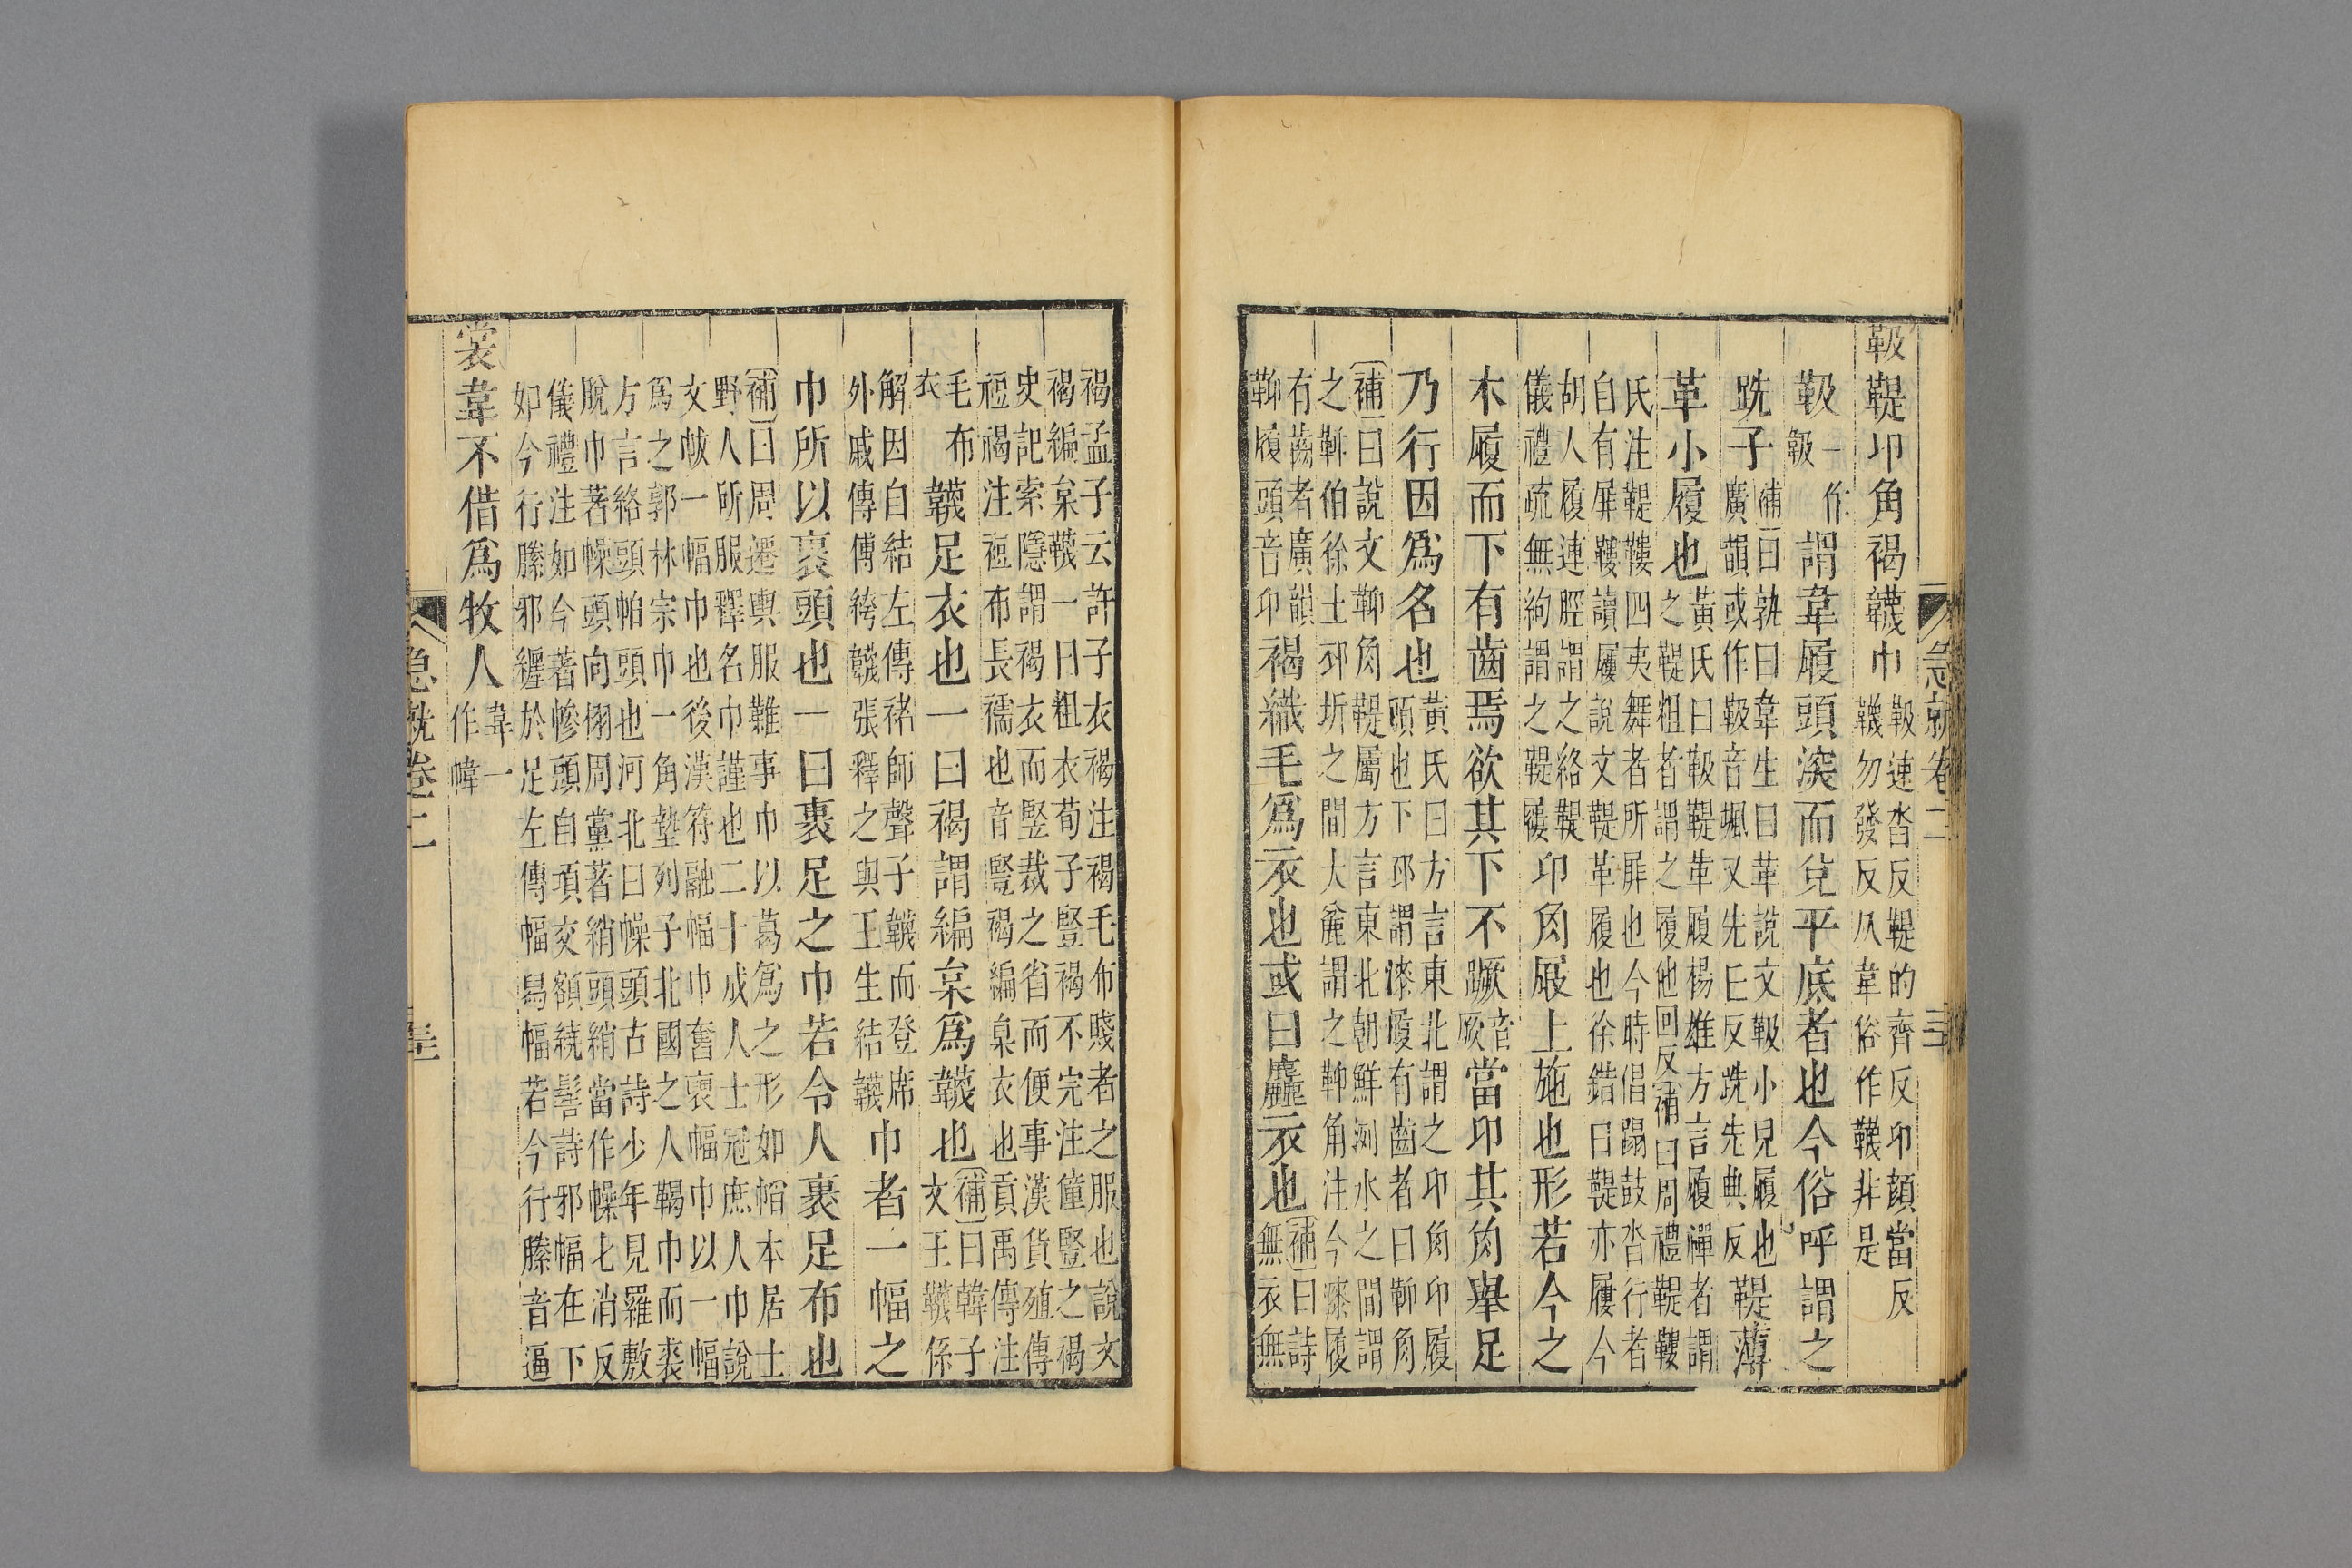 急就卷二
靸鞮卬角褐韤巾
靸速沓反鞮的齊反卬顔當反
韤勿發反从韋俗作韈非是
靸
一作
䩞
謂韋履頭深而兌平底者也今俗呼謂之
跣子
補曰孰曰韋生曰革說文靸小兒履也
廣韻或作靸音颯又先臣反跣先典反
鞮薄
革小履也
黃氏曰靸鞮革履楊雄方言履襌者謂
之鞮粗者謂之履他回反補曰周禮鞮鞻
氏注鞮鞻四夷舞者所屝也今時倡蹋鼓沓行者
自有屝鞻讀屨說文鞮革履也徐鍇曰鞮亦屨今
胡人履連脛謂之絡鞮
儀禮疏無絇謂之鞮屨
卬角屐上施也形若今之
木履而下有齒焉欲其下不蹶
音
厥
當卬其角舉足
乃行因爲名也
黃氏曰方言東北謂之卬角卬履
頭也下邳謂漆履有齒者曰䩕角
補曰說文䩕角鞮屬方言東北朝鮮洌水之間謂
之䩕伯徐土邳圻之間大麤謂之䩕角注今漆履
有齒者廣韻
䩕履頭音卬
褐織毛爲衣也或曰麤衣也
補曰詩
無衣無
褐孟子云許子衣褐注褐毛布賤者之服也說文
褐編枲韤一曰粗衣荀子豎褐不完注僮豎之褐
史記索隱謂褐衣而豎裁之省而便事漢貨殖傳
裋褐注裋布長襦也音豎褐編枲衣也貢禹傳注
毛布
衣
韤足衣也一曰褐謂編枲爲韤也
補曰韓子
文王韤係
解因自結左傳褚師聲子韤而登席
外戚傳傅絝韤張釋之與王生結韤
巾者一幅之
巾所以裹頭也一曰裹足之巾若今人裹足布也
補曰周遷輿服雜事巾以葛爲之形如帢本居士
野人所服釋名巾謹也二十成人士冠庶人巾說
文帗一幅巾也後漢符融幅巾奮袌幅巾以一幅
爲之郭林宗巾一角墊列子北國之人鞨巾而裘
方言絡頭帕頭也河北曰幧頭古詩少年見羅敷
脫巾著幧頭向栩周黨著綃頭綃當作幧七消反
儀禮注如今著幓頭自項交額繞髻詩邪幅在下
如今行縢邪纏於足左傳幅舄幅若今行縢音逼
裳韋不借爲牧人
韋一
作幃
急就卷二